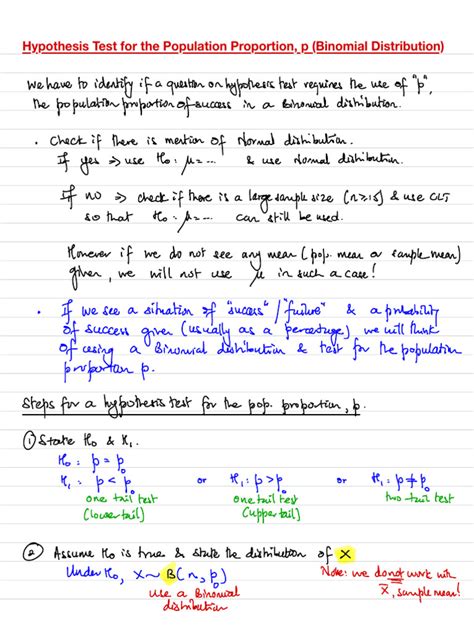 Hypothesis Test for the Population Proportion, p (Binomial Distribution)
We have to identify if a question on hypothesis test requires the use of "p",
the population proportion of success in a Binomial distribution.
• Check if there is mention of Normal distribution.
If yes ⇒ use H₀: μ = ... & use Normal distribution.
If no ⇒ check if there is a large sample size (n≥15) & use CLT
so that H₀: μ = ... can still be used.
However if we do not see any mean (pop. mean or sample mean)
given, we will not use μ in such a case!
• If we see a situation of "success"/"failure" & a probability
of success given (usually as a percentage), we will think
of using a Binomial distribution & test for the population
proportion p.
Steps for a hypothesis test for the pop. proportion, p.
① State H₀ & H₁.
H₀: p = p₀
H₁: p < p₀ or H₁: p > p₀ or H₁: p ≠ p₀
one tail test one tail test two-tail test
(lower tail) (upper tail)
② Assume H₀ is true & state the distribution of X
Under H₀, X ~ B(n, p₀) Note: we do not work with
use a Binomial X̄, sample mean!
distribution